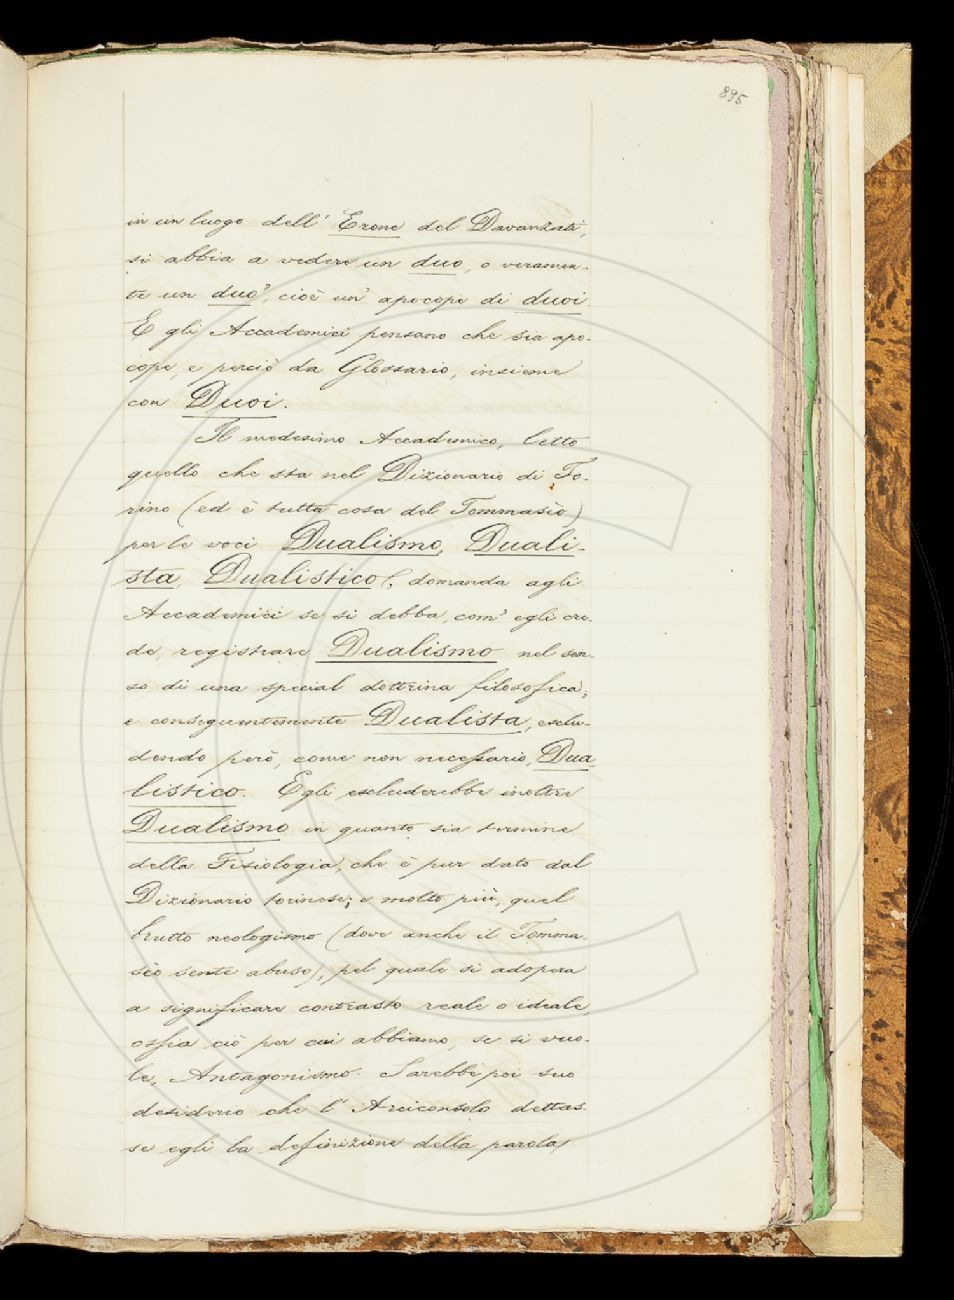 895
in un luogo dell' Erone del Davanzati,
si abbia a vedere un duo, o veramen-
te un duo', cioè un' apocope di duoi.
E gli Accademici pensano che sia apo-
cope, e perciò da Glossario, insieme
con Duoi.
Il medesimo Accademico, letto
quello che sta nel Dizionario di To-
rino (ed è tutta cosa del Tommasèo)
per le voci Dualismo, Duali-
sta, Dualistico, domanda agli
Accademici se si debba, com' egli cre-
de, registrare Dualismo nel sen-
so di una special dottrina filosofica;
e conseguentemente Dualista, esclu-
dendo però, come non necessario, Dua-
listico. Egli escluderebbe inoltre
Dualismo in quanto sia termine
della Fisiologia, che è pur dato dal
Dizionario torinese; e molto più, quel
brutto neologismo (dove anche il Tomma-
sèo sente abuso), pel quale si adopera
a significare contrasto reale o ideale,
ossia ciò per cui abbiamo, se si vuo-
le, Antagonismo. Sarebbe poi suo
desiderio che l' Arciconsolo dettas-
se egli la definizione della parola,